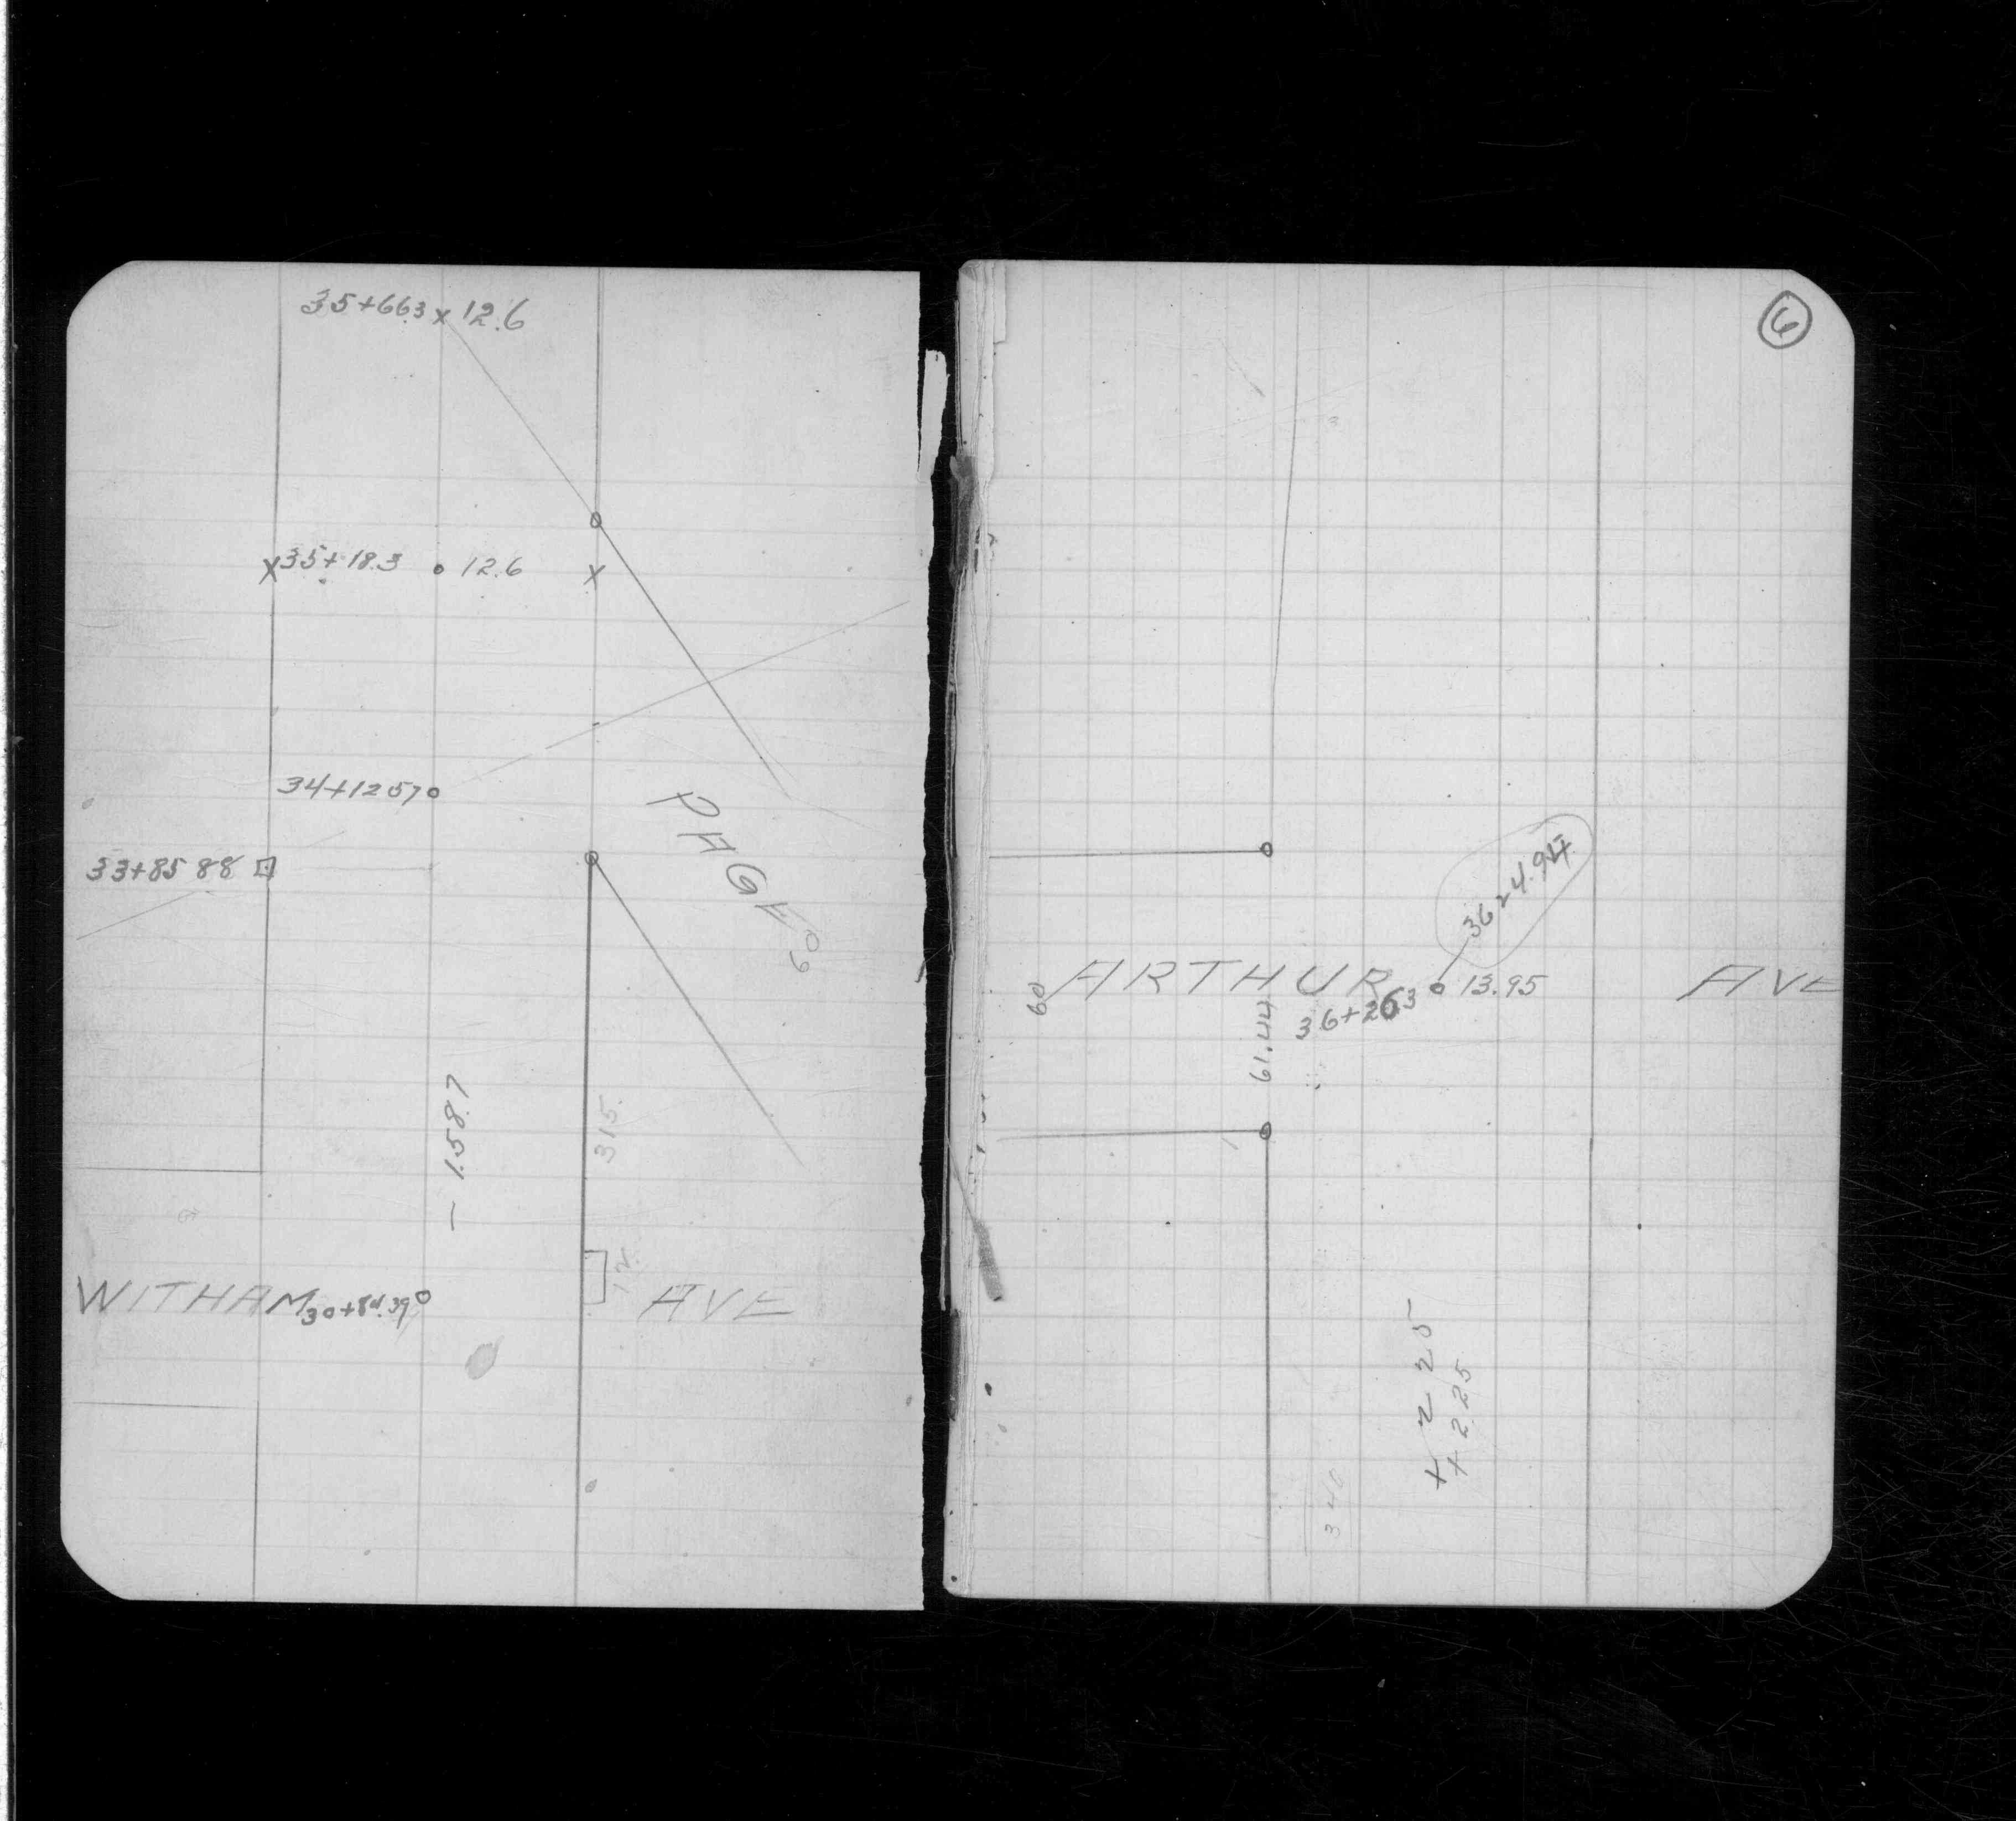 35+66.3 x 12.6
x 35+18.3 o 12.6 x
34+1257 o
33+85 88
PAGE
60
- 1.587
315.
12.
WITHAM 30+84.39 o AVE
6
3624.94
60 ARTHUR AVE
36+263 o 13.95
61.44
+ 2 25
+ 2.25
340